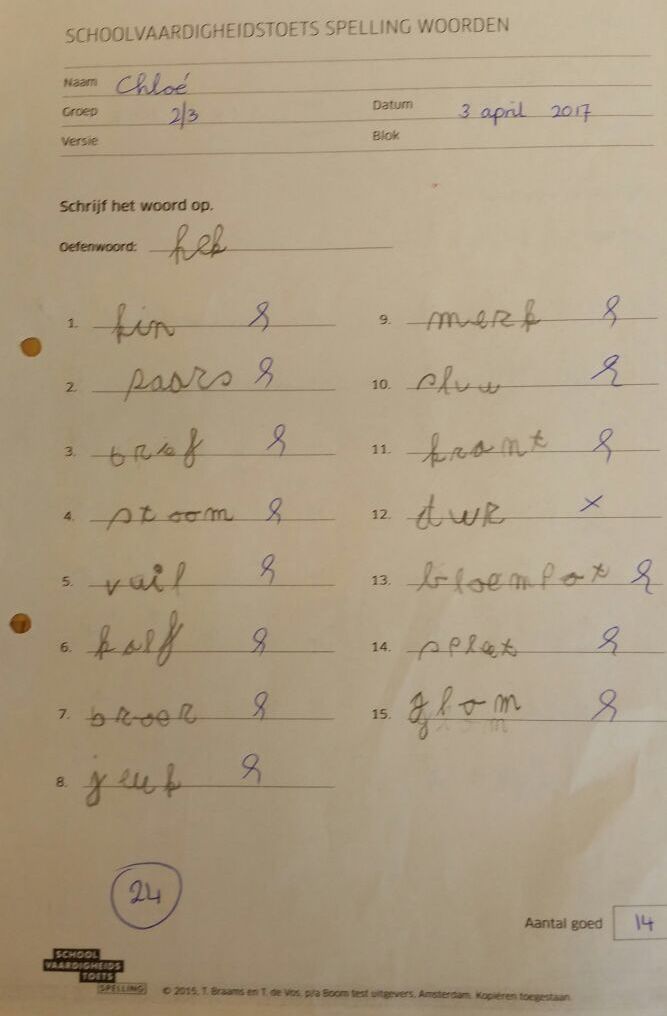 SCHOOLVAARDIGHEIDSTOETS SPELLING WOORDEN
Naam Chloé
Groep 2/3 Datum 3 april 2017
Versie Blok
Schrijf het woord op.
Oefenwoord: hek
1. kin
2. paars
3. brief
4. stoom
5. vuil
6. kalf
7. broer
8. jeuk
9. merk
10. sluw
11. krant
12. dwr
13. bloempot
14. splet
15. glom
24
Aantal goed 14
SCHOOL
VAARDIGHEIDS
TOETS
SPELLING
© 2015, T. Braams en T. de Vos, p/a Boom test uitgevers, Amsterdam. Kopiëren toegestaan.